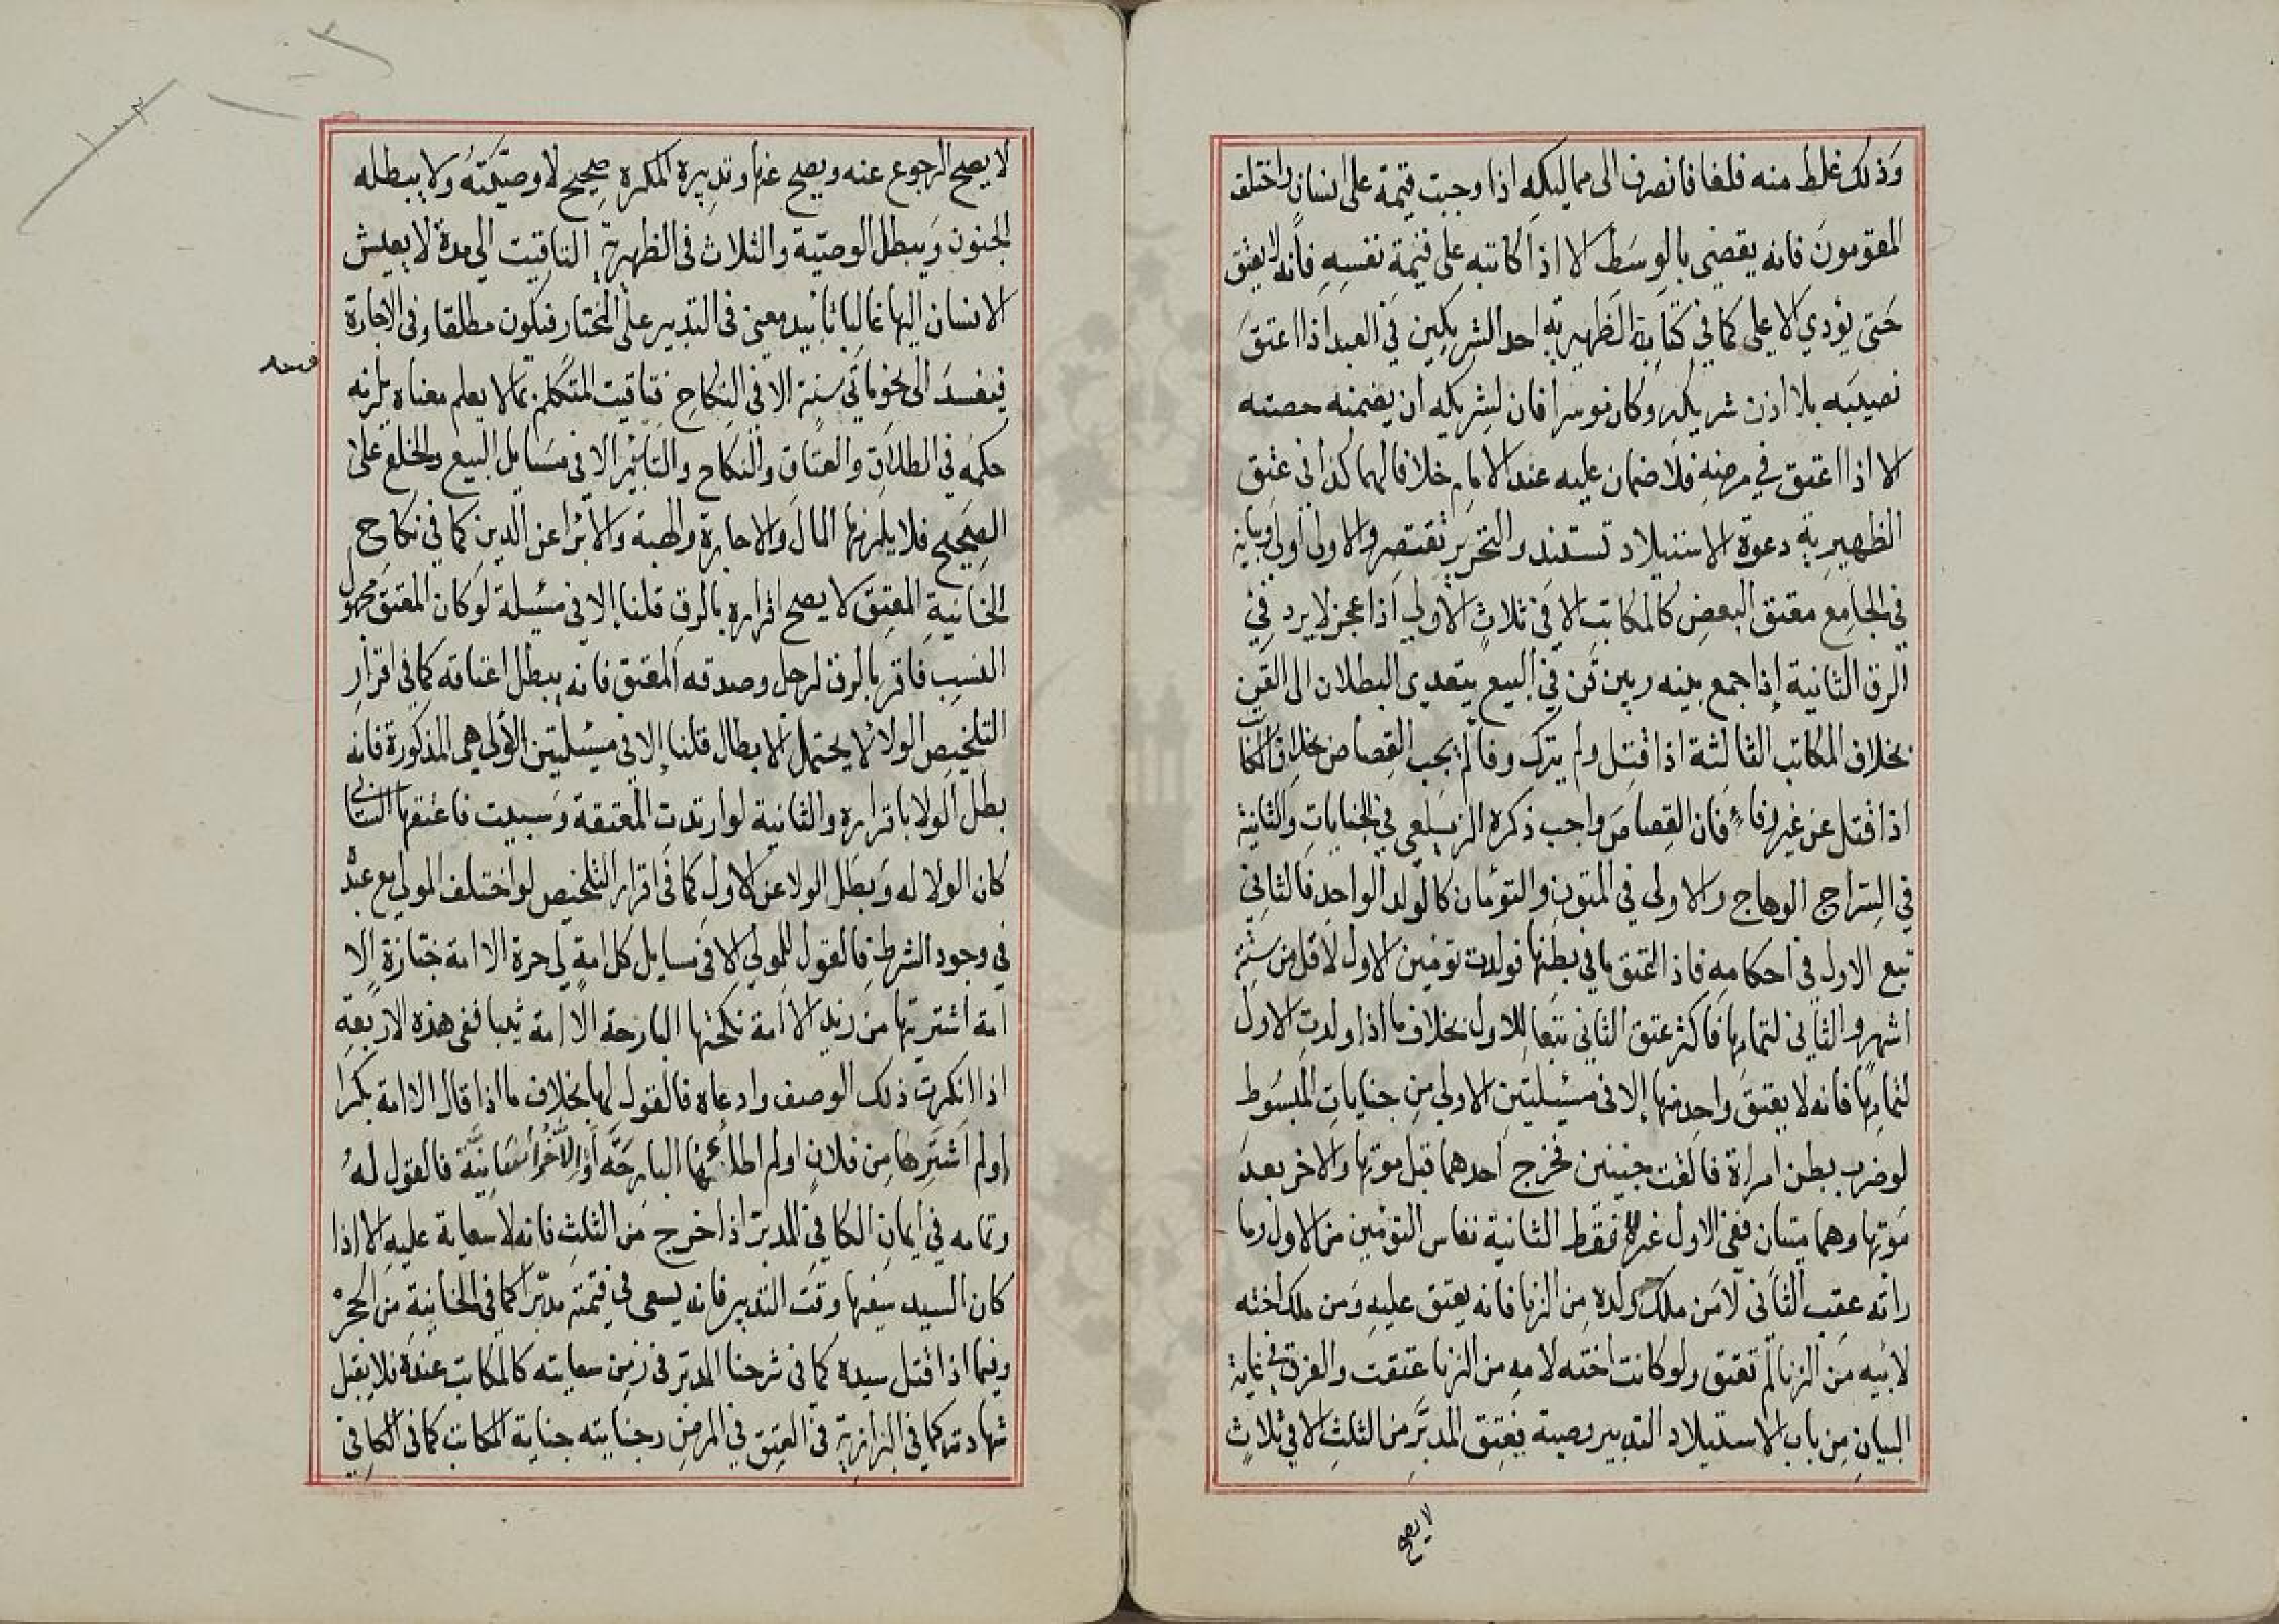 وذلك غلط منه فلغا فانصرف الى مماليكه اذا وجبت قيمة على انسان واختلف
المقومون فانه يقضي بالوسط الا اذا كاتبه على قيمة نفسه فانه لا يعتق
حتى يؤدي الاعلى كما في كتابة الظهيرية احد الشريكين في العبد اذا اعتق
نصيبه بلا اذن شريكه وكان موسرا فان لشريكه ان يضمنه حصته
الا اذا اعتق في مرضه فلا ضمان عليه عند الامام خلافا لهما كذا في عتق
الظهيرية دعوة الاستيلاد تستند والتحرير يقتصر والاولى اولى وبيانه
في الجامع معتق البعض كالمكاتب الا في ثلاث الاولى اذا عجز لا يرد في
الرق الثانية إذا جمع بينه وبين قن في البيع يتعدى البطلان الى القن
بخلاف المكاتب الثالثة اذا قتل ولم يترك وفا لم يجب القصاص بخلاف المكاتب
اذا قتل عن غير وفاء فان القصاص واجب ذكره الزيلعي في الجنايات والثانية
في السراج الوهاج والاولى في المتون والتوئمان كالولد الواحد فالثاني
تبع الاول في احكامه فاذا اعتق ما في بطنها فولدت توئمين الاول لاقل من ستة
اشهر والثاني لتمامها فاكثر عتق الثاني تبعا للاول بخلاف ما اذا ولدت الاول
لتمامها فانه لا يعتق واحد منها إلا في مسئلتين الاولى من جنايات المبسوط
لو ضرب بطن امراة فالقت جنينين فخرج احدهما قبل موتها والاخر بعد
موتها وهما ميتان ففي الاول غرة فقط الثانية نفاس التوئمين من الاول وما
راته عقب الثاني لا من ملك ولده من الزنا فانه يعتق عليه ومن ملك اخته
لابيه من الزنا لم تعتق ولو كانت اخته لامه من الزنا عتقت والفرق في غاية
البيان من باب الاستيلاد التدبير وصية فيعتق المدبر من الثلث الا في ثلاث
لا يصح
لا يصح الرجوع عنه ويصح عنها وتدبيره المكره صحيح لا وصيته ولا يبطله
الجنون ويبطل الوصية والثلاث في الظهيرية التاقيت الى مدة لا يعيش
الانسان اليها غالبا تابيد معنى في التدبير على المختار فيكون مطلقا وفي الاجارة
فيفسد الى نحو مائتي سنة الا في النكاح فتاقيت المتكلم بما لا يعلم معناه يلزمه
حكمه في الطلاق والعتاق والنكاح والتدبير الا في مسايل البيع والخلع على
الصحيح فلا يلزمها المال والاجارة والهبة والابرا عن الدين كما في نكاح
الخانية المعتق لا يصح اقراره بالرق قلنا إلا في مسئلة لو كان المعتق مجهول
النسب فاقر بالرق لرجل وصدقه المعتق فانه يبطل اعتاقه كما في اقرار
التلخيص الولاء لا يحتمل الابطال قلنا إلا في مسئلتين الاولى هي المذكورة فانه
بطل الولا باقراره والثانية لو ارتدت المعتقة وسبيت فاعتقها السابي
كان الولا له وبطل الولا عن الاول كما في اقرار التلخيص لو اختلف المولى مع عبده
في وجود الشرط فالقول للمولى الا في مسايل كل امة لي حرة الا امة خبازة إلا
امة اشتريتها من زيد الا امة نكحتها البارحة الا امة ثيبا ففي هذه الاربعة
اذا انكرت ذلك الوصف وادعاه فالقول لها بخلاف ما اذا قال الا امة بكرا
او لم اشترها من فلان او لم اطأها البارحة او إلا خراسانية فالقول له
وتمامه في ايمان الكافي المدبر اذا خرج من الثلث فانه لا سعاية عليه الا اذا
كان السيد سفيها وقت التدبير فانه يسعى في قيمته مدبرا كما في الخانية من الحجر
وفيما اذا قتل سيده كما في شرحنا المدبر في زمن سعايته كالمكاتب عنده فلا يقبل
شهادته كما في البزازية في العتق في المرض وجنايته جناية المكاتب كما في الكافي